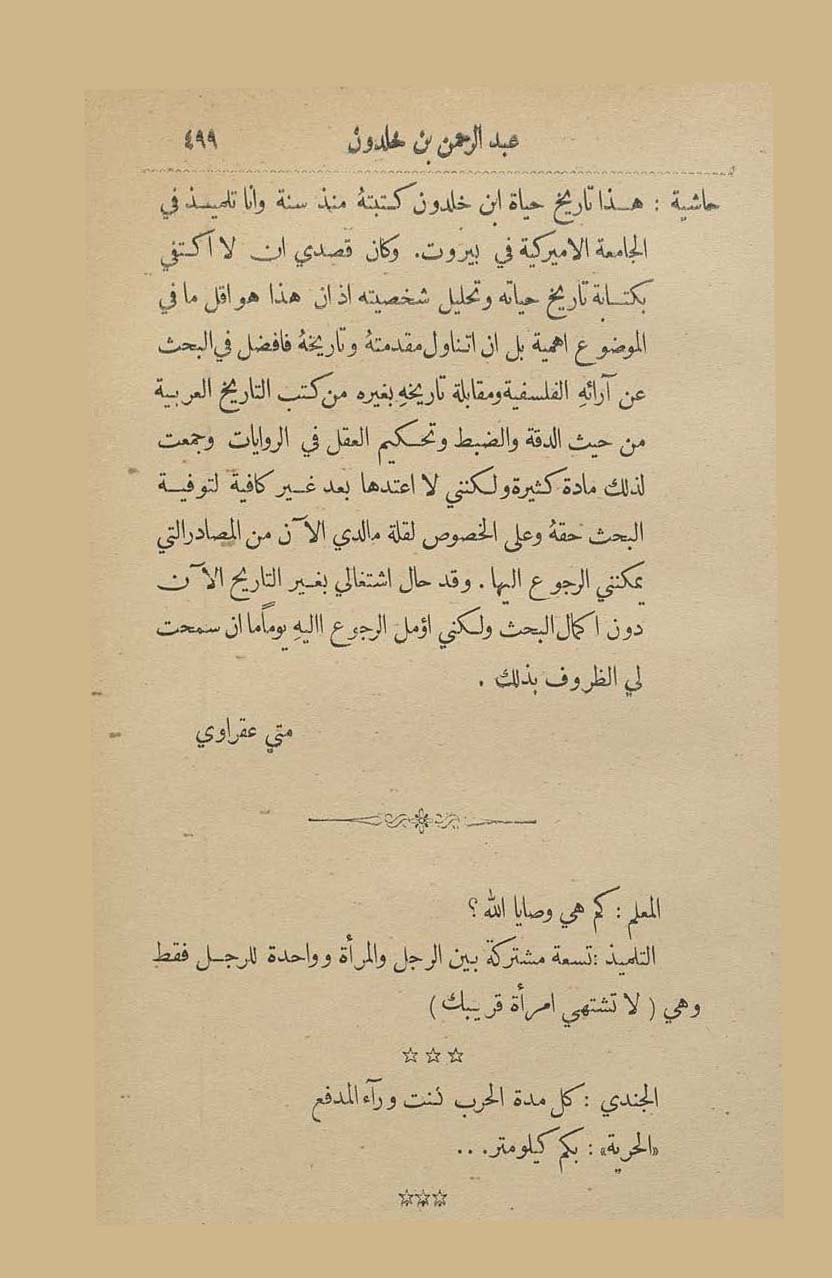 عبد الرحمن بن خلدون ٤٩٩
حاشية : هـذا تاريخ حياة ابن خلدون كتبتهُ منذ سنة وانا تلميذ في
الجامعة الاميركية في بيروت . وكان قصدي ان لا اكتفي
بكتابة تاريخ حياته وتحليل شخصيته اذ ان هذا هو اقل ما في
الموضوع اهمية بل ان اتناول مقدمتهُ وتاريخهُ فافضل في البحث
عن آرائهِ الفلسفية ومقابلة تاريخهِ بغيره من كتب التاريخ العربية
من حيث الدقة والضبط وتحكيم العقل في الروايات وجمعت
لذلك مادة كثيرة ولكنني لا اعتدها بعد غير كافية لتوفية
البحث حقهُ وعلى الخصوص لقلة مالدي الآن من المصادر التي
يمكنني الرجوع اليها . وقد حال اشتغالي بغير التاريخ الآن
دون اكمال البحث ولكني اؤمل الرجوع االيهِ يوماًما ان سمحت
لي الظروف بذلك .
متي عقراوي
المعلم : كم هي وصايا الله ؟
التلميذ : تسعة مشتركة بين الرجل والمرأة وواحدة للرجل فقط
وهي ( لا تشتهي امرأة قريبك )
☆ ☆ ☆
الجندي : كل مدة الحرب كنت ورآء المدفع
«الحرية» : بكم كيلومتر...
☆☆☆